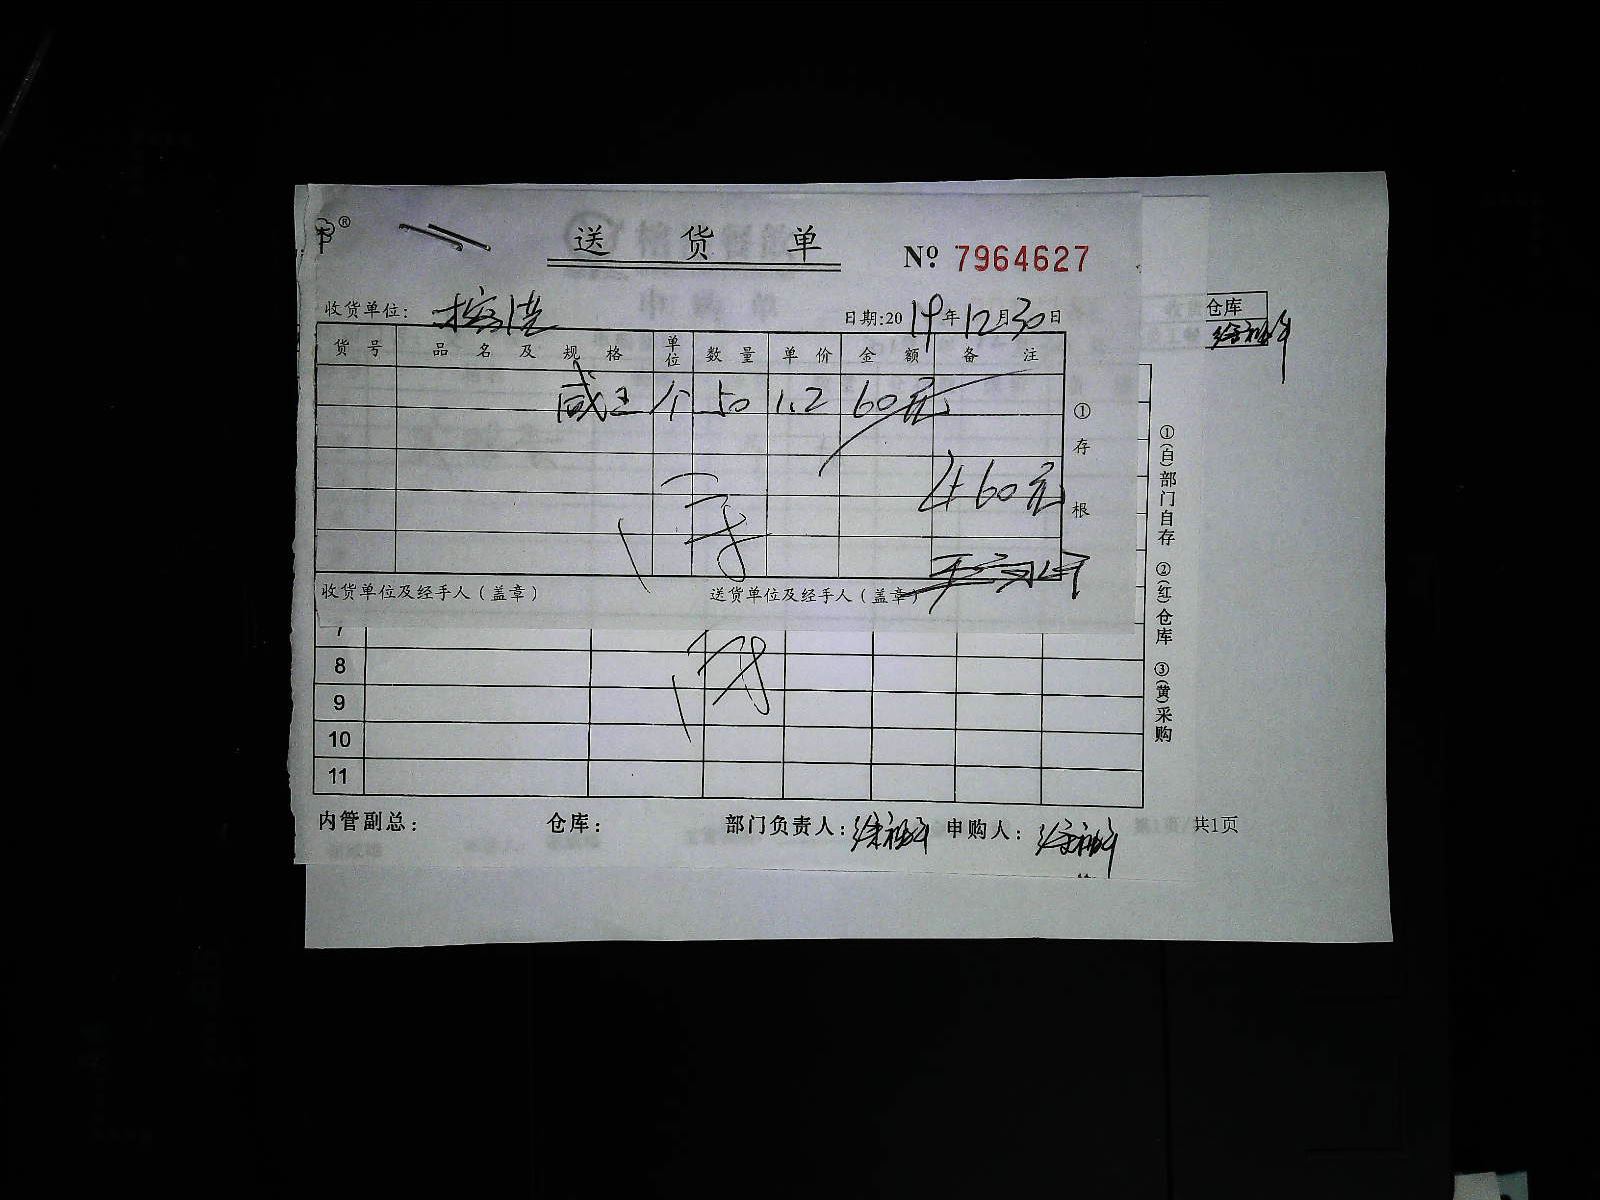 ®
送 货 单
№ 7964627
收货单位:
日期:2019年12月30日
货号 品名及规格 单位 数量 单价 金额 备注
个 50 1.2 60元
60元
①存根
收货单位及经手人(盖章) 送货单位及经手人(盖章)
仓库
7
8
9
10
11
①(白)部门自存 ②(红)仓库 ③(黄)采购
内管副总: 仓库: 部门负责人: 申购人:
共1页